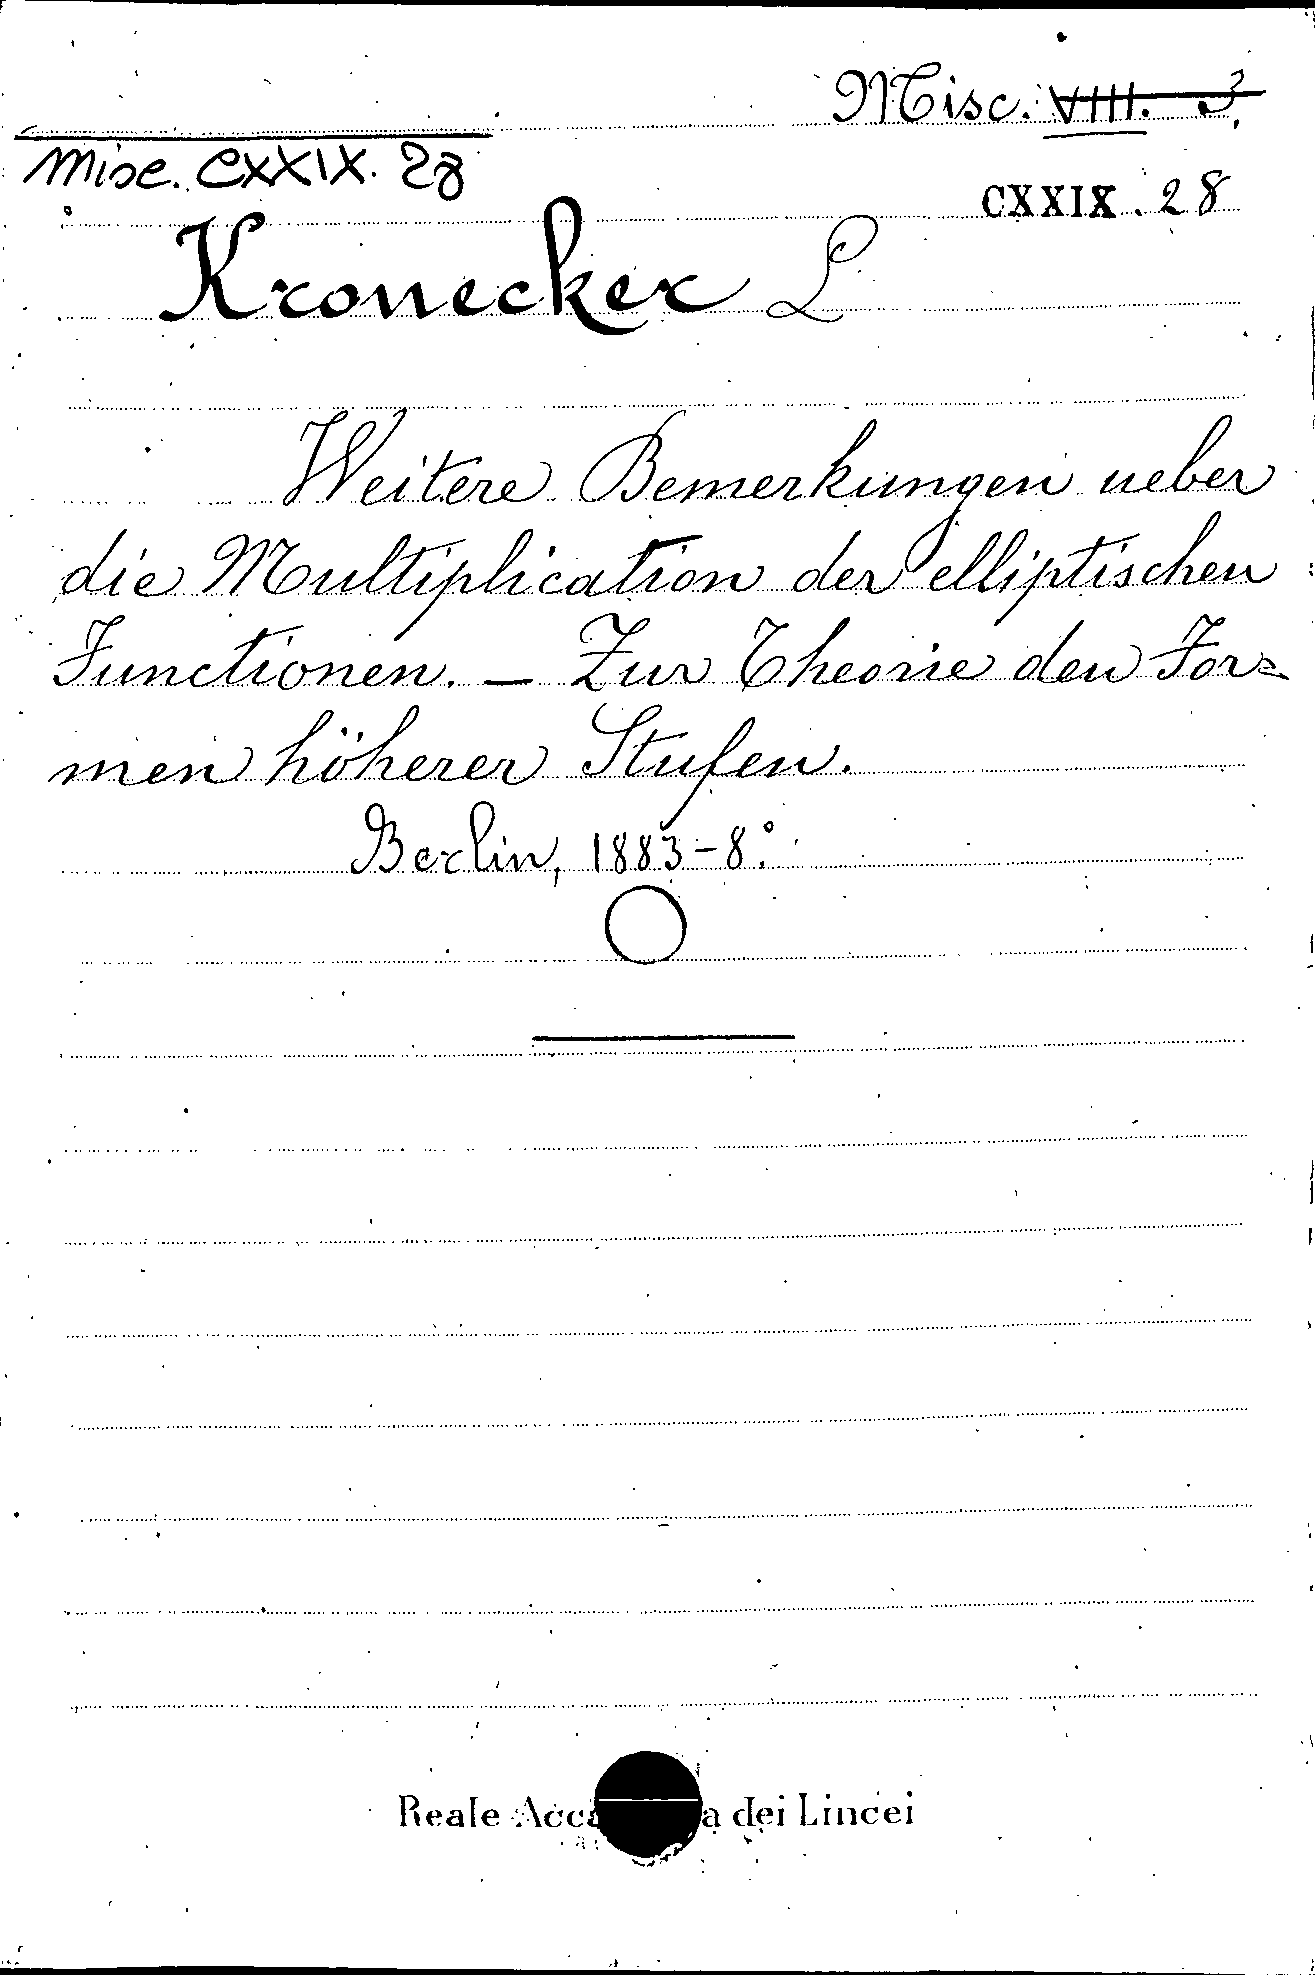 Misc. VIII. 3.
Misc. CXXIX. 28
CXXIX. 28
Kronecker L
Weitere Bemerkungen ueber
die Multiplication der elliptischen
Functionen. — Zur Theorie den For=
men höherer Stufen.
Berlin, 1883-8.°
Reale Acca a dei Lincei